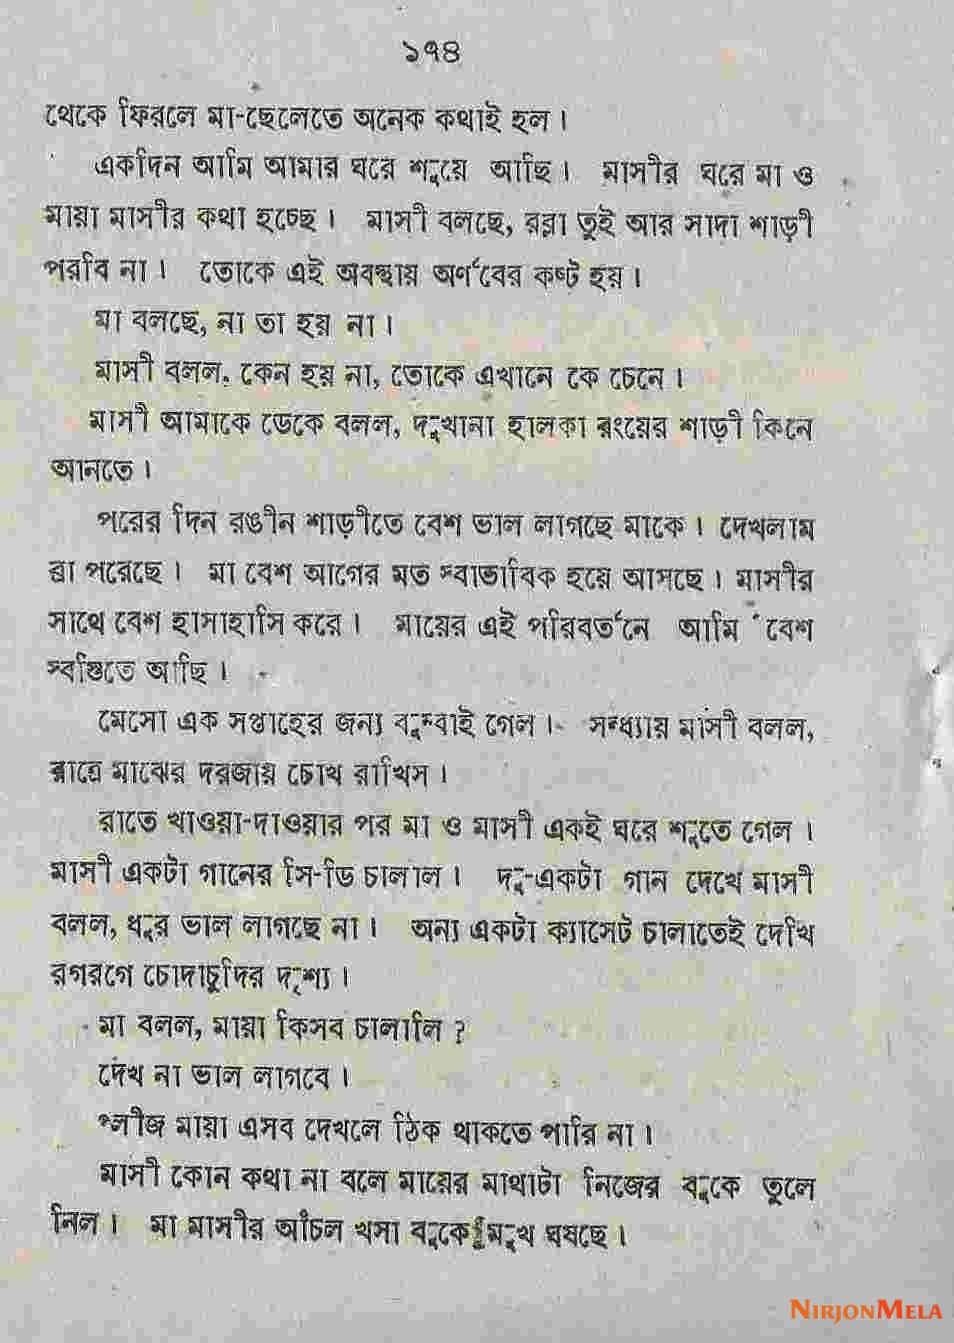 ১৭৪
থেকে ফিরলে মা-ছেলেতে অনেক কথাই হল।
একদিন আমি আমার ঘরে শুয়ে আছি। মাসীর ঘরে মা ও
মায়া মাসীর কথা হচ্ছে। মাসী বলছে, রত্না তুই আর সাদা শাড়ী
পরবি না। তোকে এই অবস্থায় অর্ণবের কষ্ট হয়।
মা বলছে, না তা হয় না।
মাসী বলল, কেন হয় না, তোকে এখানে কে চেনে।
মাসী আমাকে ডেকে বলল, দুখানা হালকা রংয়ের শাড়ী কিনে
আনতে।
পরের দিন রঙীন শাড়ীতে বেশ ভাল লাগছে মাকে। দেখলাম
ব্রা পরেছে। মা বেশ আগের মত স্বাভাবিক হয়ে আসছে। মাসীর
সাথে বেশ হাসাহাসি করে। মায়ের এই পরিবর্তনে আমি বেশ
স্বস্তিতে আছি।
মেসো এক সপ্তাহের জন্য বুম্বাই গেল। সন্ধ্যায় মাসী বলল,
রাত্রে মাঝের দরজায় চোখ রাখিস।
রাতে খাওয়া-দাওয়ার পর মা ও মাসী একই ঘরে শুতে গেল।
মাসী একটা গানের সি-ডি চালাল। দু-একটা গান দেখে মাসী
বলল, ধুর ভাল লাগছে না। অন্য একটা ক্যাসেট চালাতেই দেখি
রগরগে চোদাচুদির দৃশ্য।
মা বলল, মায়া কিসব চালালি?
দেখ না ভাল লাগবে।
প্লীজ মায়া এসব দেখলে ঠিক থাকতে পারি না।
মাসী কোন কথা না বলে মায়ের মাথাটা নিজের বুকে তুলে
নিল। মা মাসীর আঁচল খসা বুকে মুখ ঘষছে।
NIRJONMELA